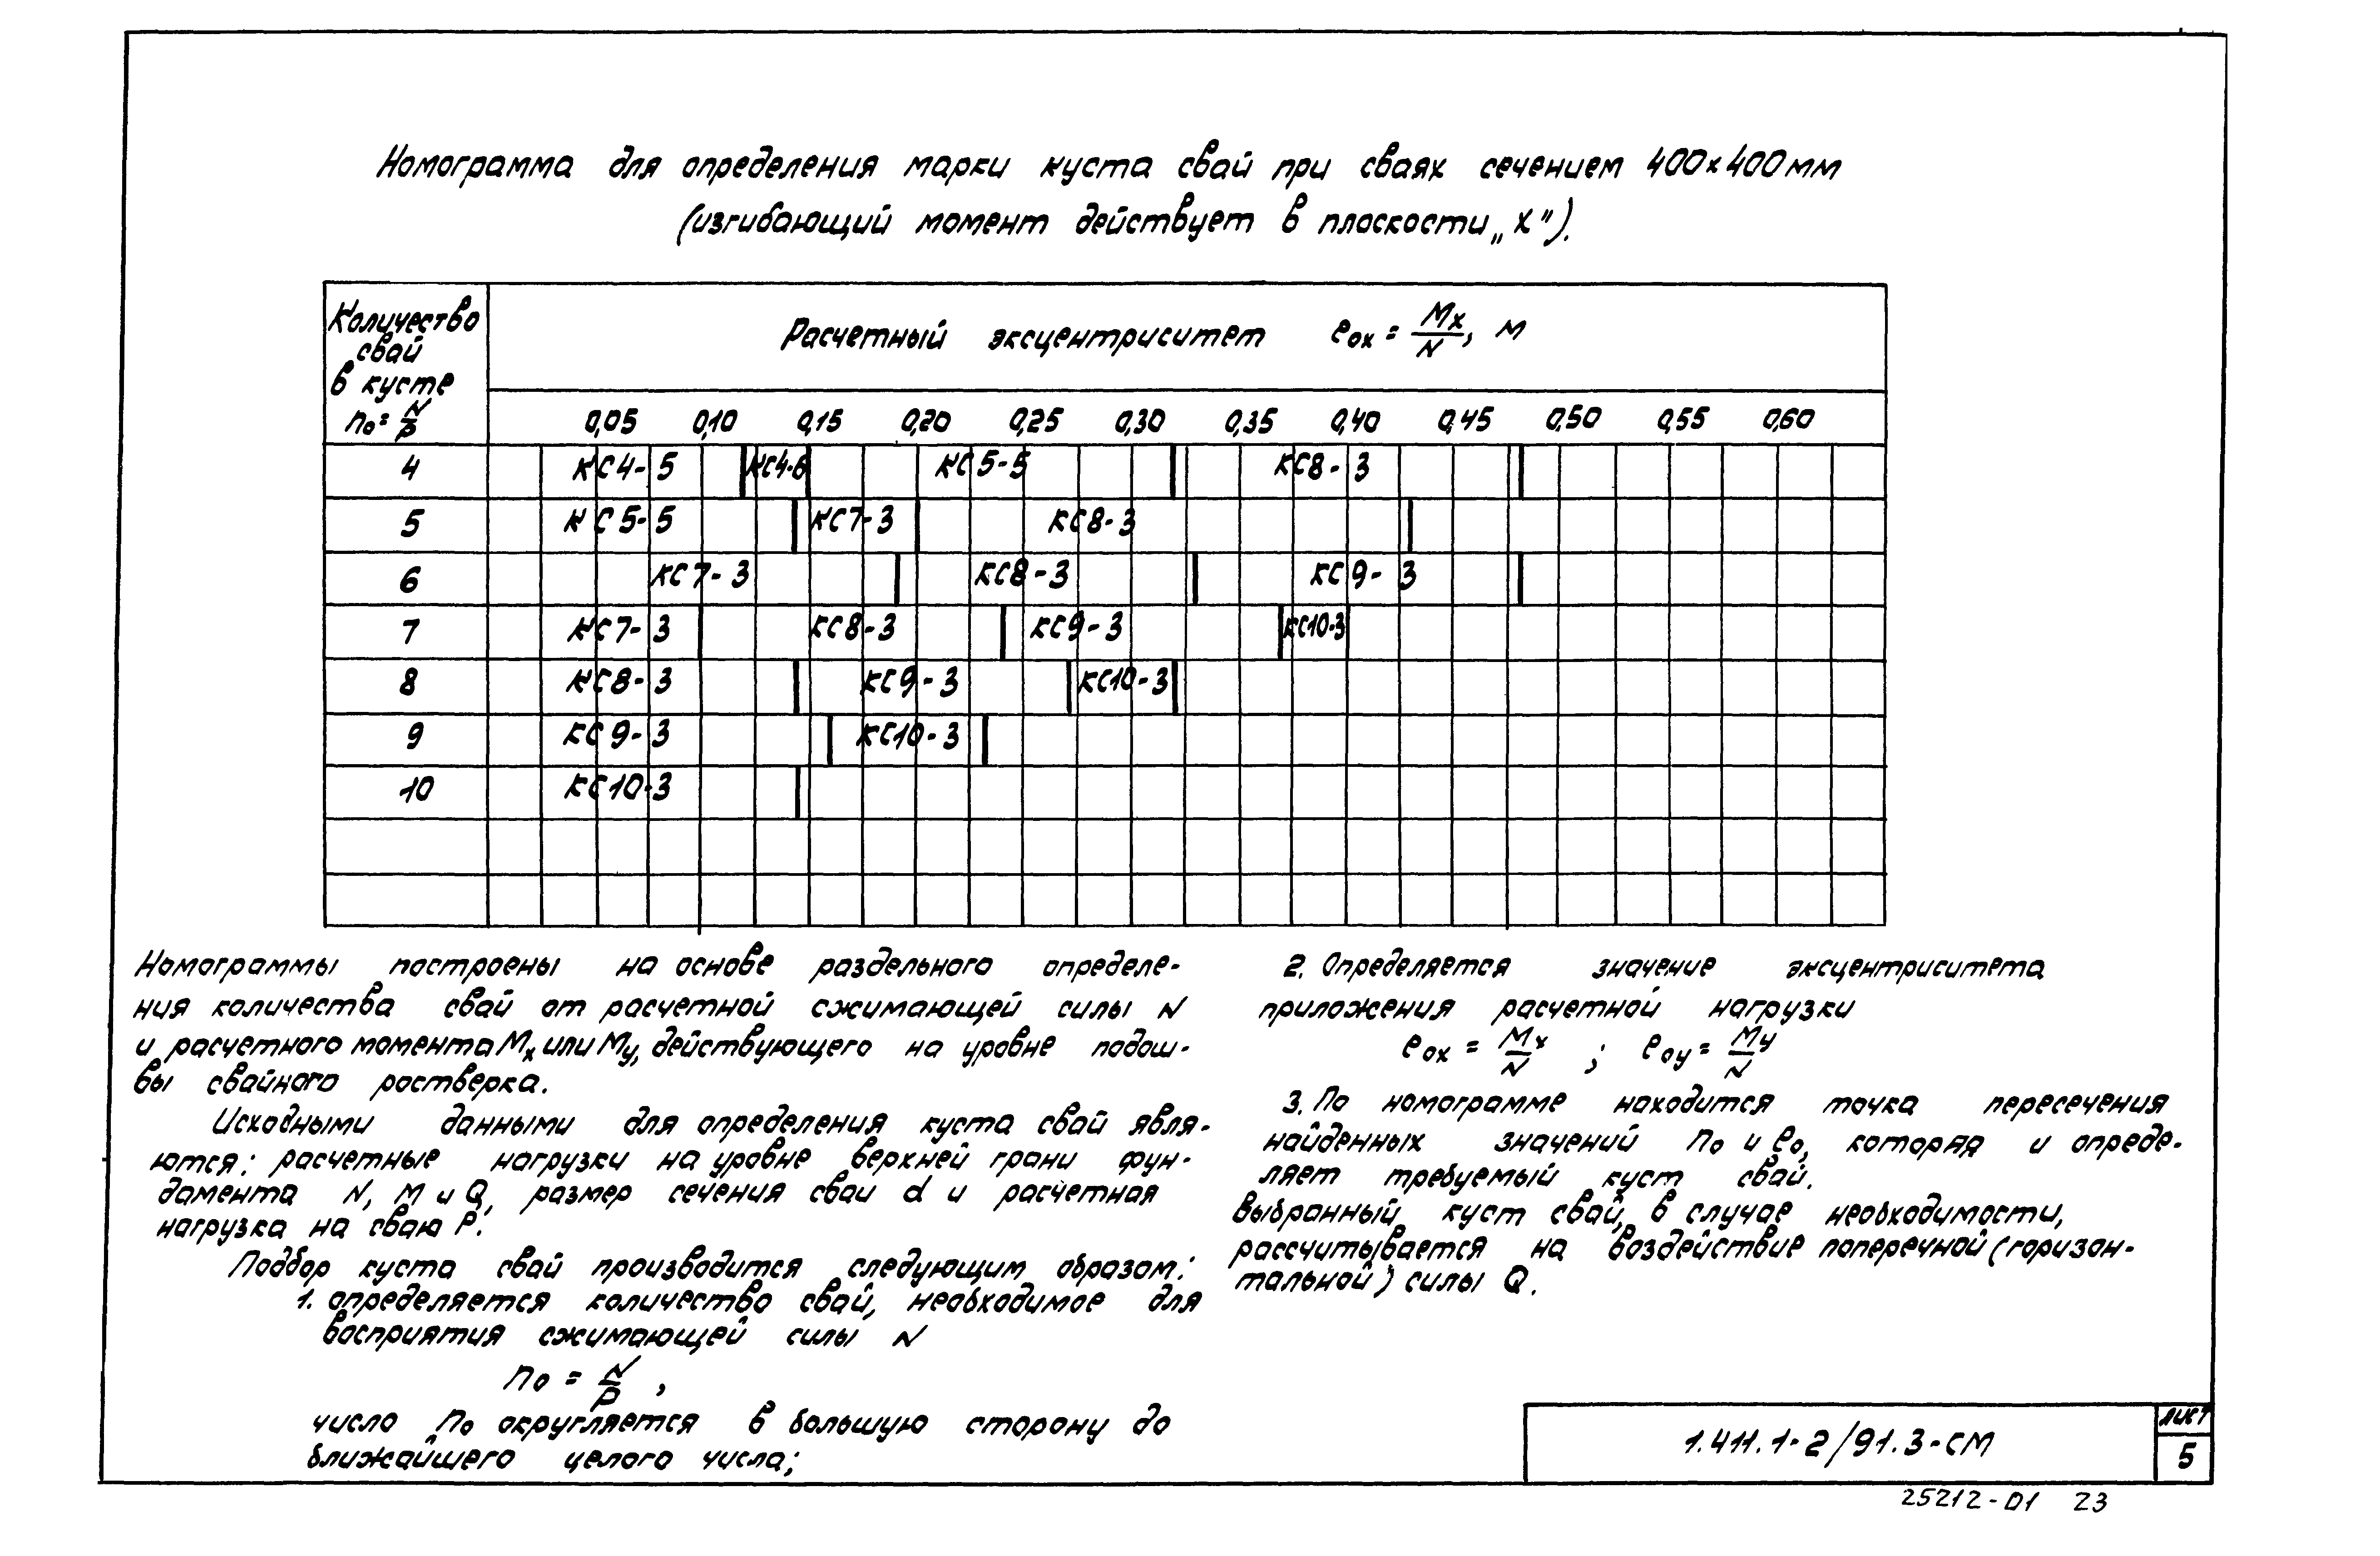 Номограмма для определения марки куста свай при сваях сечением 400×400мм
(изгибающий момент действует в плоскости „X").
Количество
свай
в кусте
n₀ = N/P
Расчетный эксцентриситет e₀ₓ = Mx/N, м
0,05 0,10 0,15 0,20 0,25 0,30 0,35 0,40 0,45 0,50 0,55 0,60
4 КС4-5 КС4-6 КС5-5 КС8-3
5 КС5-5 КС7-3 КС8-3
6 КС7-3 КС8-3 КС9-3
7 КС7-3 КС8-3 КС9-3 КС10-3
8 КС8-3 КС9-3 КС10-3
9 КС9-3 КС10-3
10 КС10-3
Номограммы построены на основе раздельного определе-
ния количества свай от расчетной сжимающей силы N
и расчетного момента Mx или My, действующего на уровне подош-
вы свайного ростверка.
Исходными данными для определения куста свай явля-
ются: расчетные нагрузки на уровне верхней грани фун-
дамента N, M и Q, размер сечения сваи d и расчетная
нагрузка на сваю P.
Подбор куста свай производится следующим образом:
1. определяется количество свай, необходимое для
восприятия сжимающей силы N
n₀ = N/P ,
число n₀ округляется в большую сторону до
ближайшего целого числа;
2. Определяется значение эксцентриситета
приложения расчетной нагрузки
e₀ₓ = Mx/N ; e₀y = My/N
3. По номограмме находится точка пересечения
найденных значений n₀ и e₀, которая и опреде-
ляет требуемый куст свай.
Выбранный куст свай, в случае необходимости,
рассчитывается на воздействие поперечной (горизон-
тальной) силы Q.
1.411.1-2/91.3-СМ
лист
5
25212-01 23